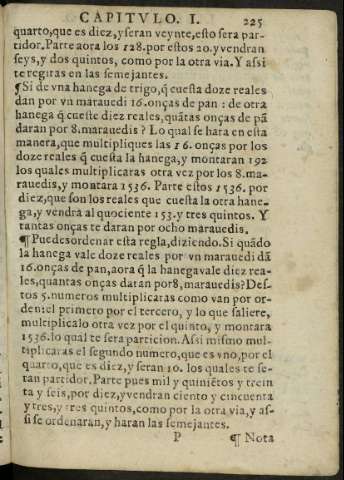 CAPITVLO. I. 225
quarto, que es diez, y seran veynte, esto sera par-
tidor. Parte aora los 128. por estos 20. y vendran
seys, y dos quintos, como por la otra via. Y assi
te regiras en las semejantes.
¶ Si de vna hanega de trigo, q̃ cuesta doze reales
dan por vn marauedi 16. onças de pan: de otra
hanega q̃ cueste diez reales, quãtas onças de pã
daran por 8. marauedis? Lo qual se hara en esta
manera, que multipliques las 16. onças por los
doze reales q̃ cuesta la hanega, y montaran 192
los quales multiplicaras otra vez por los 8. ma-
rauedis, y montara 1536. Parte estos 1536. por
diez, que son los reales que cuesta la otra hane-
ga, y vendra al quociente 153. y tres quintos. Y
tantas onças te daran por ocho marauedis.
¶ Puedes ordenar esta regla, diziendo. Si quãdo
la hanega vale doze reales por vn marauedi dã
16. onças de pan, aora q̃ la hanega vale diez rea-
les, quantas onças daran por 8, marauedis? Des-
tos 5. numeros multiplicaras como van por or-
den el primero por el tercero, y lo que saliere,
multiplicalo otra vez por el quinto, y montara
1536. lo qual sera particion. Assi mismo mul-
tiplicaras el segundo numero, que es vno, por el
quarto, que es diez, y seran 10. los quales te se-
ran partidor. Parte pues mil y quiniẽtos y trein
ta y seis, por diez, y vendran ciento y cincuenta
y tres, y tres quintos, como por la otra via, y as-
si se ordenaran, y haran las semejantes.
P ¶ Nota